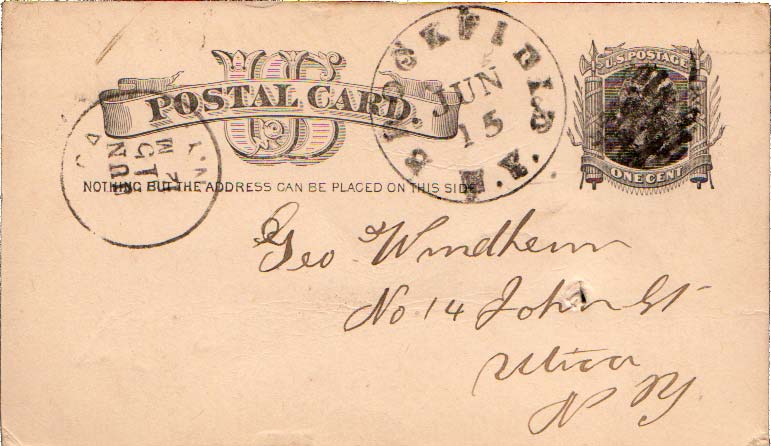 US
POSTAL CARD.
NOTHING BUT THE ADDRESS CAN BE PLACED ON THIS SIDE
BROOKFIELD. N.Y.
JUN
15
U.S. POSTAGE
ONE CENT
N.Y.
JUN
15
Geo Windheim
No 14 John St
Utica
N Y